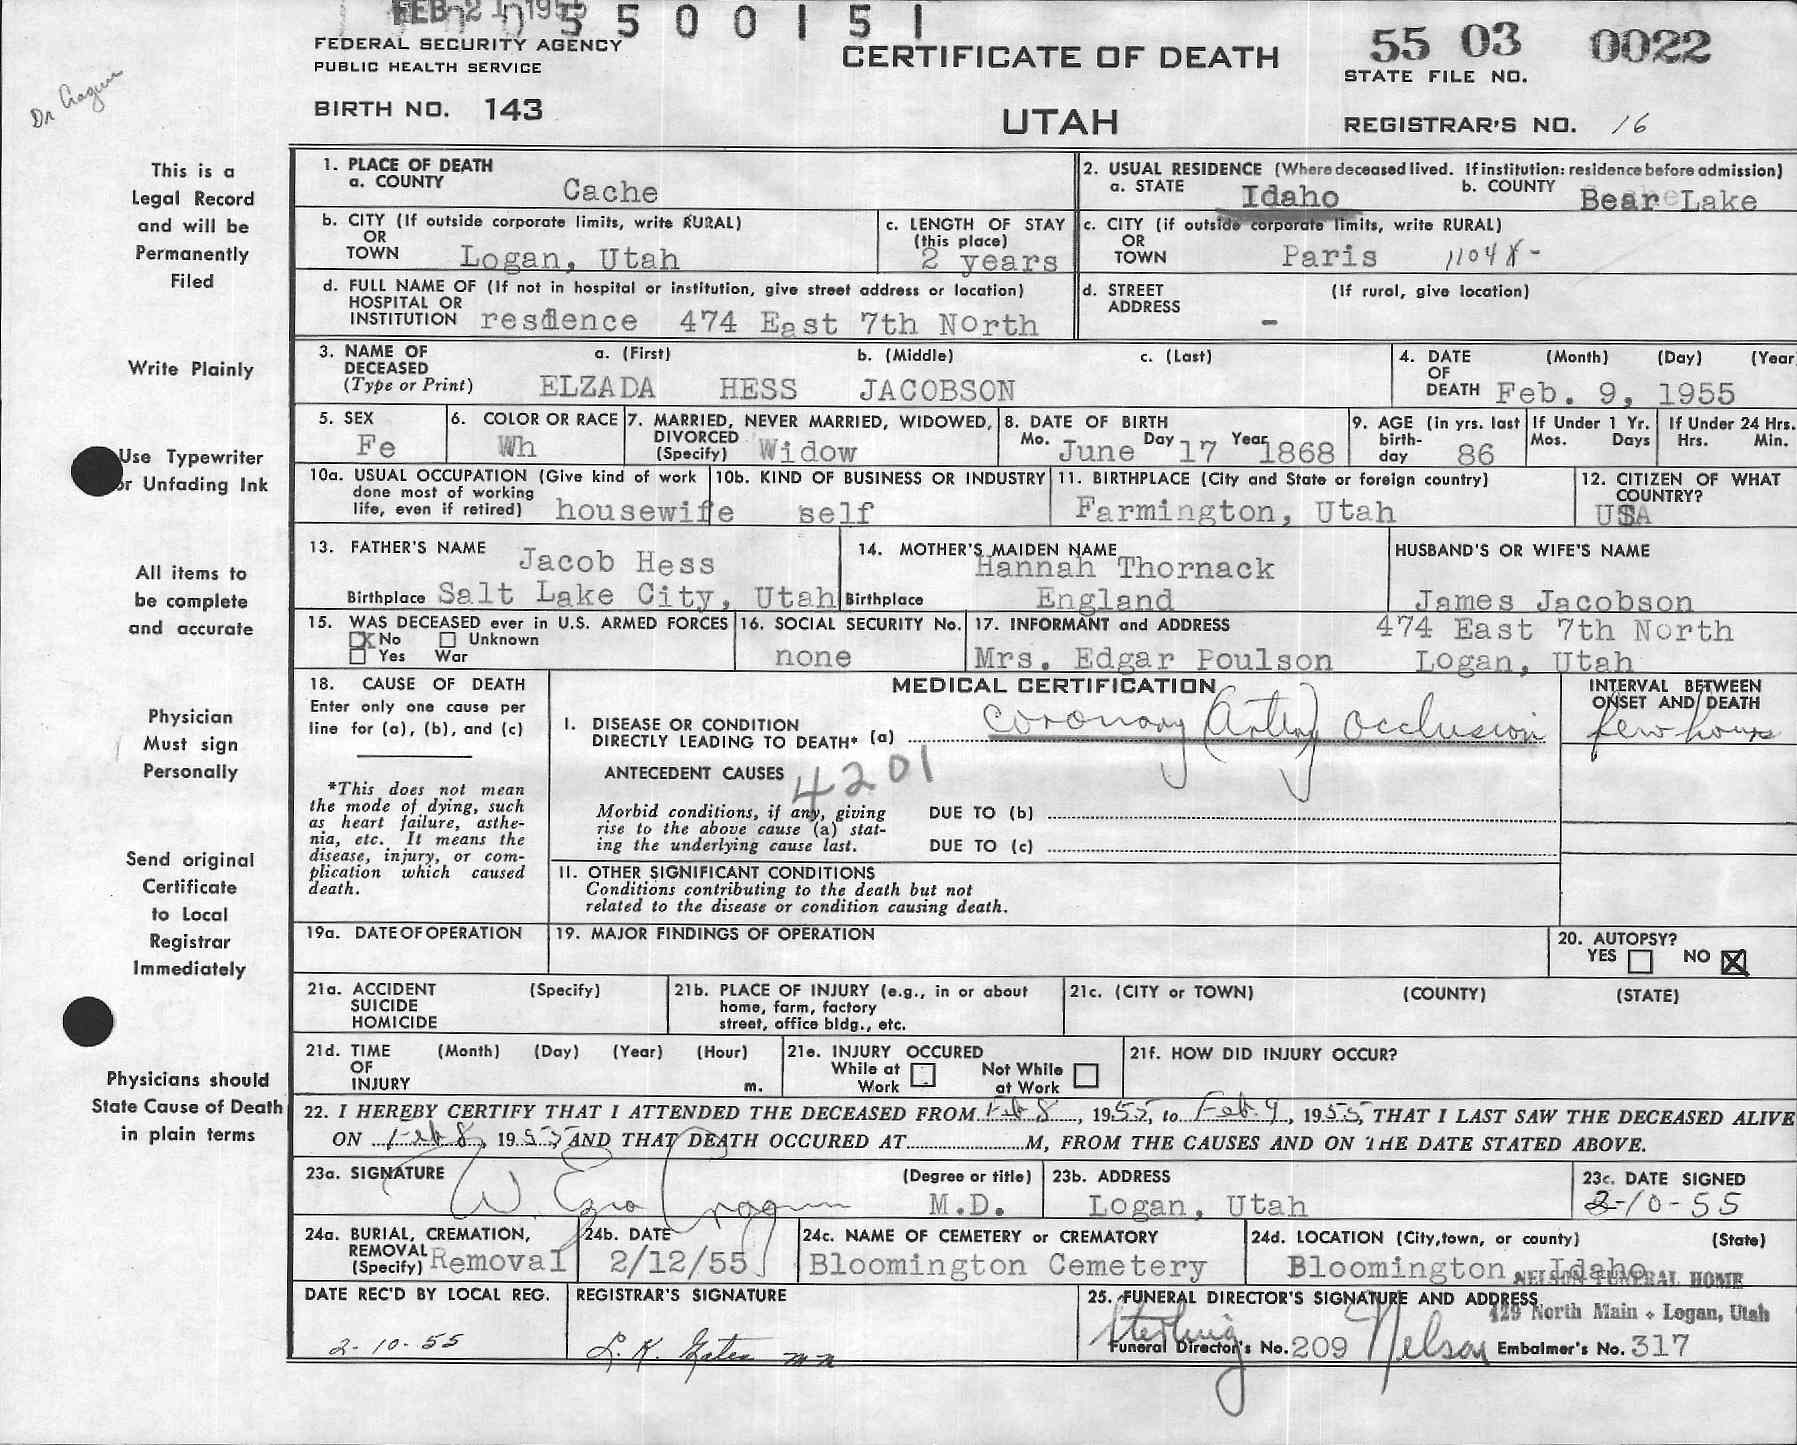 FEB 21 1955 5500151
FEDERAL SECURITY AGENCY
PUBLIC HEALTH SERVICE
CERTIFICATE OF DEATH
55 03 0022
STATE FILE NO.
Dr Cragun
BIRTH NO. 143
UTAH
REGISTRAR'S NO. 16
This is a
Legal Record
and will be
Permanently
Filed
Write Plainly
Use Typewriter
or Unfading Ink
All items to
be complete
and accurate
Physician
Must sign
Personally
Send original
Certificate
to Local
Registrar
Immediately
Physicians should
State Cause of Death
in plain terms
1. PLACE OF DEATH
a. COUNTY Cache
2. USUAL RESIDENCE (Where deceased lived. If institution: residence before admission)
a. STATE Idaho b. COUNTY Bear Lake
b. CITY (If outside corporate limits, write RURAL)
OR
TOWN Logan, Utah
c. LENGTH OF STAY
(this place)
2 years
c. CITY (if outside corporate limits, write RURAL)
OR
TOWN Paris 1104X-
d. FULL NAME OF (If not in hospital or institution, give street address or location)
HOSPITAL OR
INSTITUTION resdence 474 East 7th North
d. STREET (If rural, give location)
ADDRESS -
3. NAME OF a. (First) b. (Middle) c. (Last)
DECEASED
(Type or Print) ELZADA HESS JACOBSON
4. DATE (Month) (Day) (Year
OF
DEATH Feb. 9, 1955
5. SEX
Fe
6. COLOR OR RACE
Wh
7. MARRIED, NEVER MARRIED, WIDOWED,
DIVORCED
(Specify) Widow
8. DATE OF BIRTH
Mo. June Day 17 Year 1868
9. AGE (in yrs. last
birth-
day 86
If Under 1 Yr.
Mos. Days
If Under 24 Hrs.
Hrs. Min.
10a. USUAL OCCUPATION (Give kind of work
done most of working
life, even if retired) housewife
10b. KIND OF BUSINESS OR INDUSTRY
self
11. BIRTHPLACE (City and State or foreign country)
Farmington, Utah
12. CITIZEN OF WHAT
COUNTRY?
USA
13. FATHER'S NAME Jacob Hess
Birthplace Salt Lake City, Utah
14. MOTHER'S MAIDEN NAME
Hannah Thornack
Birthplace England
HUSBAND'S OR WIFE'S NAME
James Jacobson
15. WAS DECEASED ever in U.S. ARMED FORCES
X No Unknown
Yes War
16. SOCIAL SECURITY No.
none
17. INFORMANT and ADDRESS 474 East 7th North
Mrs. Edgar Poulson Logan, Utah
18. CAUSE OF DEATH
Enter only one cause per
line for (a), (b), and (c)
*This does not mean
the mode of dying, such
as heart failure, asthe-
nia, etc. It means the
disease, injury, or com-
plication which caused
death.
MEDICAL CERTIFICATION
INTERVAL BETWEEN
ONSET AND DEATH
I. DISEASE OR CONDITION
DIRECTLY LEADING TO DEATH* (a) coronary (Artery) occlusion few hours
ANTECEDENT CAUSES 4201
Morbid conditions, if any, giving
rise to the above cause (a) stat-
ing the underlying cause last.
DUE TO (b)
DUE TO (c)
II. OTHER SIGNIFICANT CONDITIONS
Conditions contributing to the death but not
related to the disease or condition causing death.
19a. DATE OF OPERATION
19. MAJOR FINDINGS OF OPERATION
20. AUTOPSY?
YES NO X
21a. ACCIDENT (Specify)
SUICIDE
HOMICIDE
21b. PLACE OF INJURY (e.g., in or about
home, farm, factory
street, office bldg., etc.
21c. (CITY or TOWN) (COUNTY) (STATE)
21d. TIME (Month) (Day) (Year) (Hour)
OF
INJURY m.
21e. INJURY OCCURED
While at Not While
Work at Work
21f. HOW DID INJURY OCCUR?
22. I HEREBY CERTIFY THAT I ATTENDED THE DECEASED FROM Feb 8, 1955, to Feb. 9, 1955, THAT I LAST SAW THE DECEASED ALIVE
ON Feb 8, 1955 AND THAT DEATH OCCURED AT M, FROM THE CAUSES AND ON THE DATE STATED ABOVE.
23a. SIGNATURE (Degree or title)
W. Ezra Cragun M.D.
23b. ADDRESS
Logan, Utah
23c. DATE SIGNED
2-10-55
24a. BURIAL, CREMATION,
REMOVAL
(Specify) Removal
24b. DATE
2/12/55
24c. NAME OF CEMETERY or CREMATORY
Bloomington Cemetery
24d. LOCATION (City, town, or county) (State)
Bloomington Idaho
DATE REC'D BY LOCAL REG.
2-10-55
REGISTRAR'S SIGNATURE
L. K. Gates
NELSON FUNERAL HOME
25. FUNERAL DIRECTOR'S SIGNATURE AND ADDRESS
429 North Main Logan, Utah
Sterling Nelson
Funeral Director's No. 209 Embalmer's No. 317